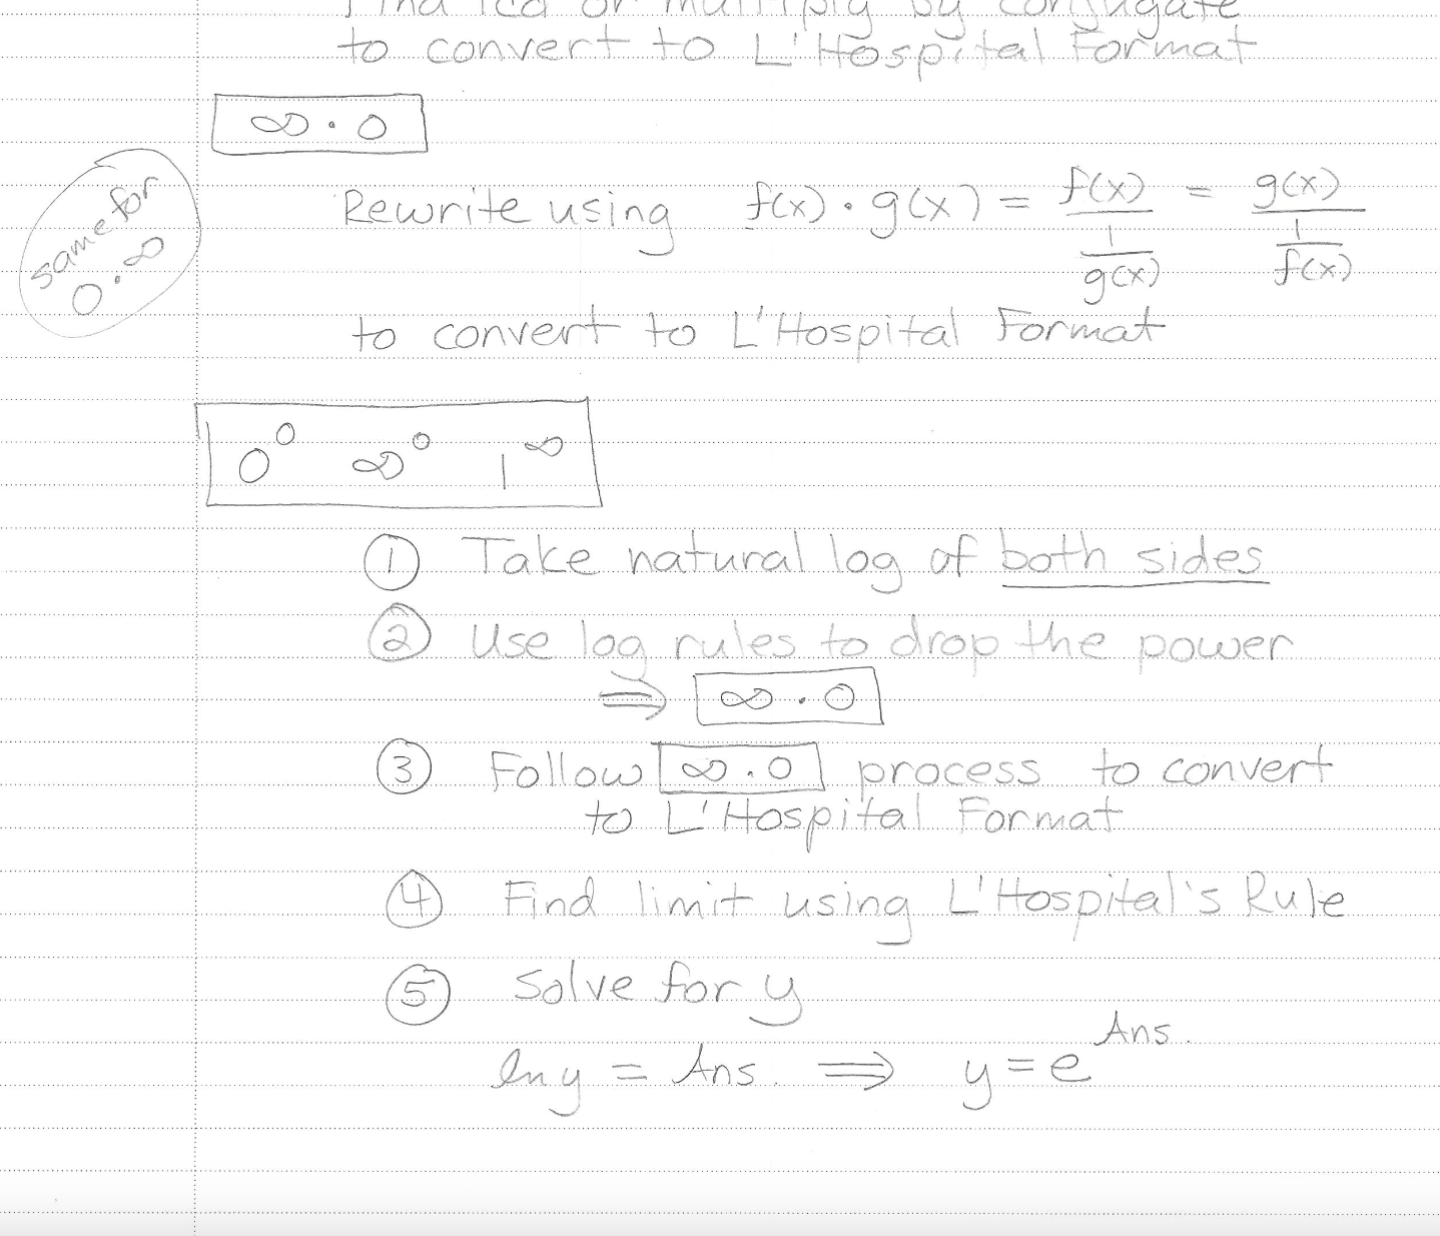 Find lcd or multiply by conjugate
to convert to L'Hospital Format
∞ · 0
same for
0 · ∞
Rewrite using f(x) · g(x) = f(x) / (1 / g(x)) = g(x) / (1 / f(x))
to convert to L'Hospital Format
0⁰ ∞⁰ 1^∞
① Take natural log of both sides
② Use log rules to drop the power
⇒ ∞ · 0
③ Follow ∞ · 0 process to convert
to L'Hospital Format
④ Find limit using L'Hospital's Rule
⑤ Solve for y
ln y = Ans. ⇒ y = e^Ans.